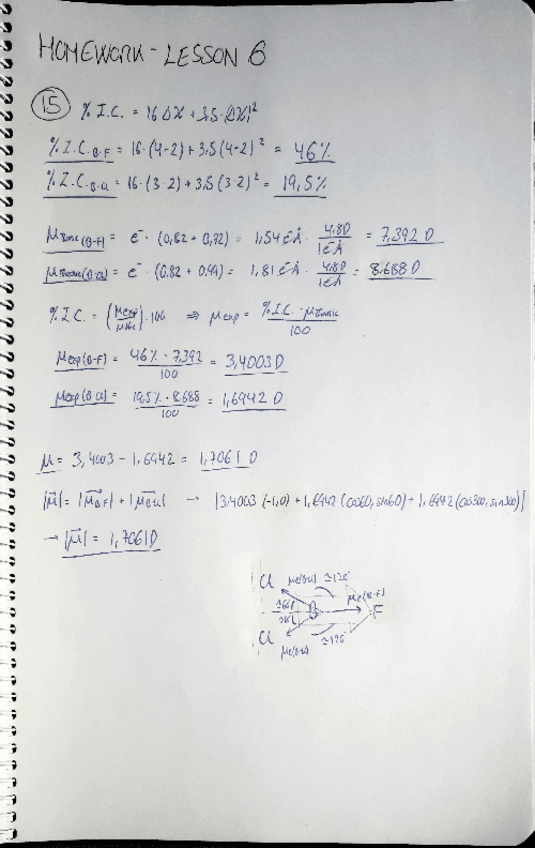 HOMEWORK - LESSON 6
15 % I.C. = 16 ΔX + 3,5·(ΔX)²
% I.C. B-F = 16·(4-2) + 3,5(4-2)² = 46%
% I.C. B-Cl = 16·(3-2) + 3,5(3-2)² = 19,5%
μionic(B-F) = e⁻·(0,82 + 0,72) = 1,54 e⁻Å · 4,8D/1e⁻Å = 7,392 D
μionic(B-Cl) = e⁻·(0,82 + 0,99) = 1,81 e⁻Å · 4,8D/1e⁻Å = 8,688 D
% I.C. = (μexp/μionic)·100 ⇒ μexp = % I.C. · μionic/100
μexp(B-F) = 46% · 7,392/100 = 3,4003 D
μexp(B-Cl) = 19,5% · 8,688/100 = 1,6942 D
μ = 3,4003 - 1,6942 = 1,7061 D
|μ⃗| = |μ⃗B-F| + |μ⃗B-Cl| → |3,4003 (-1,0) + 1,6942 (cos60, sin60) + 1,6942 (cos300, sin300)|
→ |μ⃗| = 1,7061 D
Cl μe(B-Cl) ≃120°
≃60° B μe(B-F) F
Cl ≃120°
μe(B-Cl)